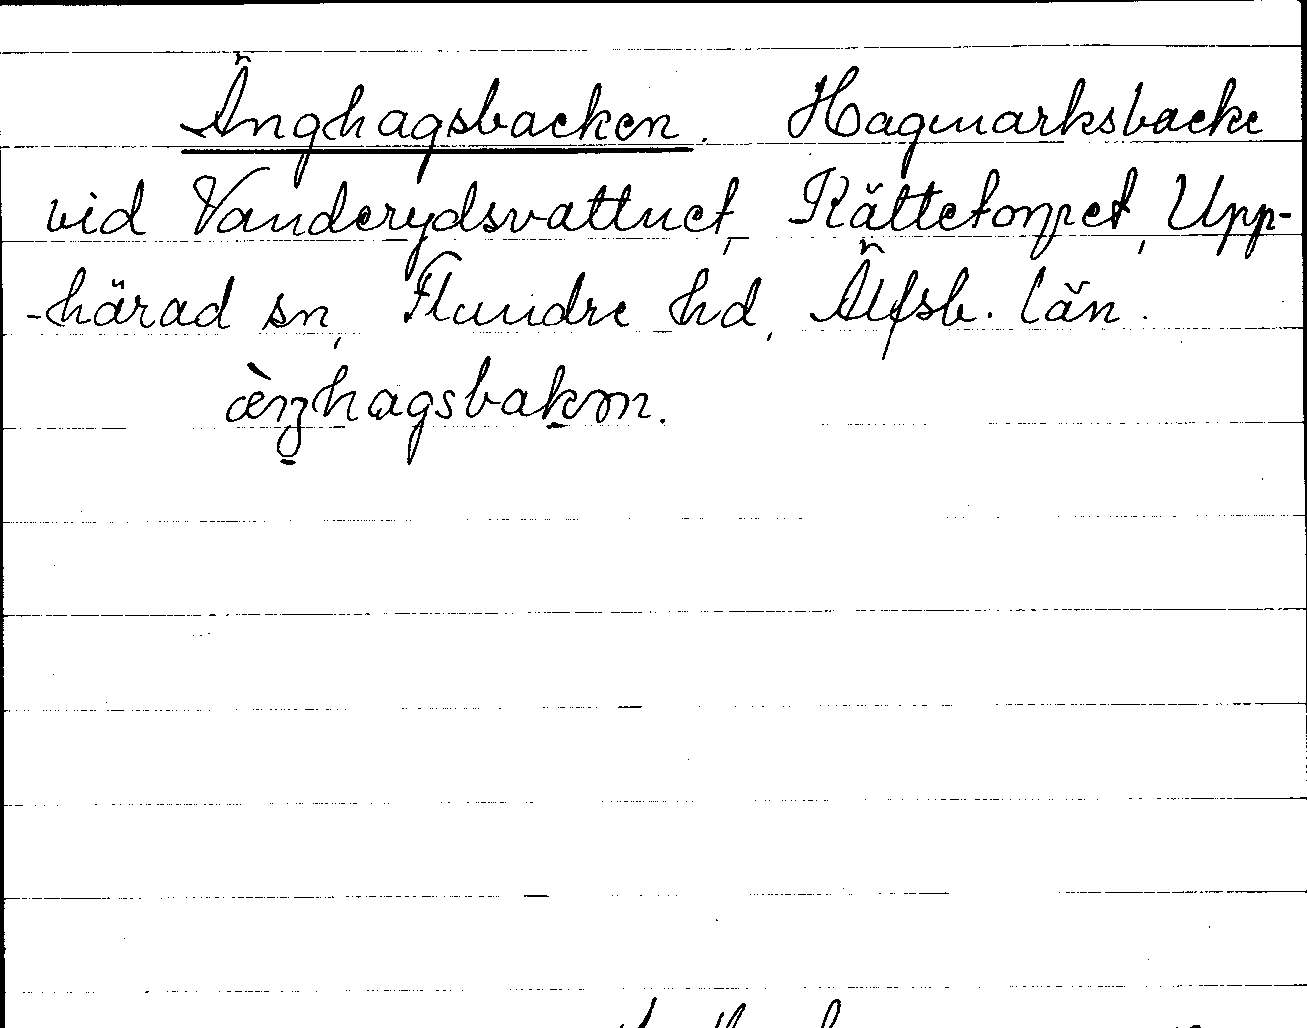 Änghagsbacken. Hagmarksbacke
vid Vanderydsvattnet, Kättetorpet, Upp-
-härad sn, Flundre hd, Älfsb. län.